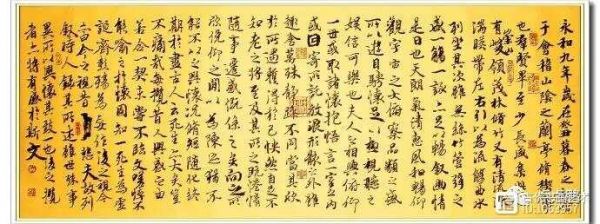 永和九年歲在癸丑暮春之初會
于會稽山陰之蘭亭脩禊事
也群賢畢至少長咸集此地
有崇山峻領茂林脩竹又有清流激
湍暎帶左右引以為流觴曲水
列坐其次雖無絲竹管弦之
盛一觴一詠亦足以暢敘幽情
是日也天朗氣清惠風和暢仰
觀宇宙之大俯察品類之盛
所以遊目騁懷足以極視聽之
娛信可樂也夫人之相與俯仰
一世或取諸懷抱悟言一室之內
或因寄所託放浪形骸之外雖
趣舍萬殊靜躁不同當其欣
於所遇蹔得於己怏然自足不
知老之將至及其所之既惓情
隨事遷感慨係之矣向之所
欣俛仰之間以為陳迹猶不
能不以之興懷況脩短隨化終
期於盡古人云死生亦大矣豈
不痛哉每攬昔人興感之由
若合一契未嘗不臨文嗟悼不
能喻之於懷固知一死生為虛
誕齊彭殤為妄作後之視今
亦由今之視昔悲夫故列
敘時人錄其所述雖世殊事
異所以興懷其致一也後之攬
者亦將有感於斯文